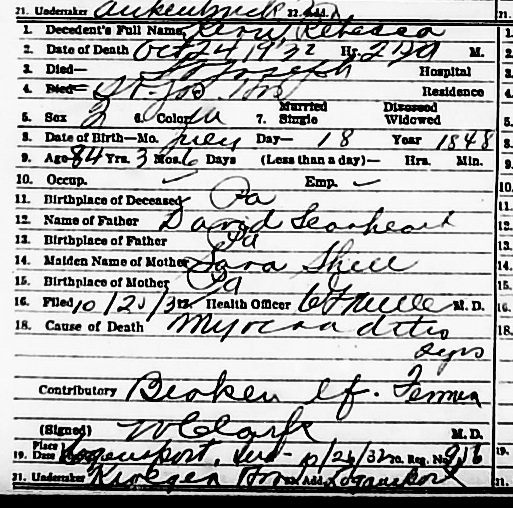 21. Undertaker 22. Add.
1. Decedent's Full Name Rebecca
2. Date of Death Oct 24 1932 Hr. M.
3. Died— St Joseph Hospital
4. Died— St. Jos Residence
Married Divorced
5. Sex 6. Color W 7. Single Widowed
8. Date of Birth—Mo. July Day— 18 Year 1848
9. Age 84 Yrs. 3 Mos. 6 Days (Less than a day)— Hrs. Min.
10. Occup. Emp.
11. Birthplace of Deceased Pa
12. Name of Father David
13. Birthplace of Father Pa
14. Maiden Name of Mother Sara
15. Birthplace of Mother Pa
16. Filed 10/2 /32 17. Health Officer M. D.
18. Cause of Death Myocarditis
2 yrs
Contributory Broken lf. Femur
(Signed) Clark M. D.
19. Place Date Logansport, Ind— 10/26/32 20. Reg. No.
21. Undertaker Kroeger 22. Add. Logansport